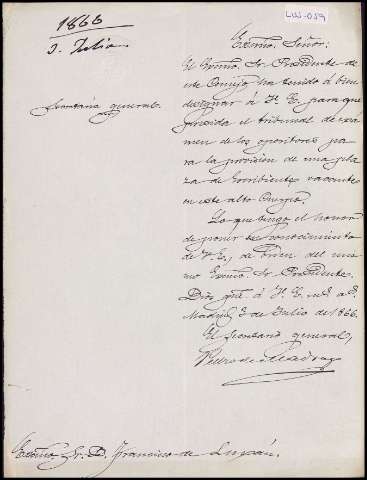 1866
3. Julio
LUJ-059
Secretaría general.
Excmo. Señor:
El Excmo. Sr. Presidente de
este Consejo, ha tenido á bien
designar á V. E. para que
presida el tribunal de exá-
men de los opositores pa-
ra la provision de una pla-
za de Escribiente, vacante
en este alto Cuerpo.
Lo que tengo el honor
de poner en conocimiento
de V. E., de órden del mis-
mo Excmo. Sr. Presidente.
Dios gue. á V. E. ms. as.
Madrid, 3 de Julio de 1866.
El Secretario general,
Pedro de Madrazo
Excmo. Sr. D. Francisco de Luxán.